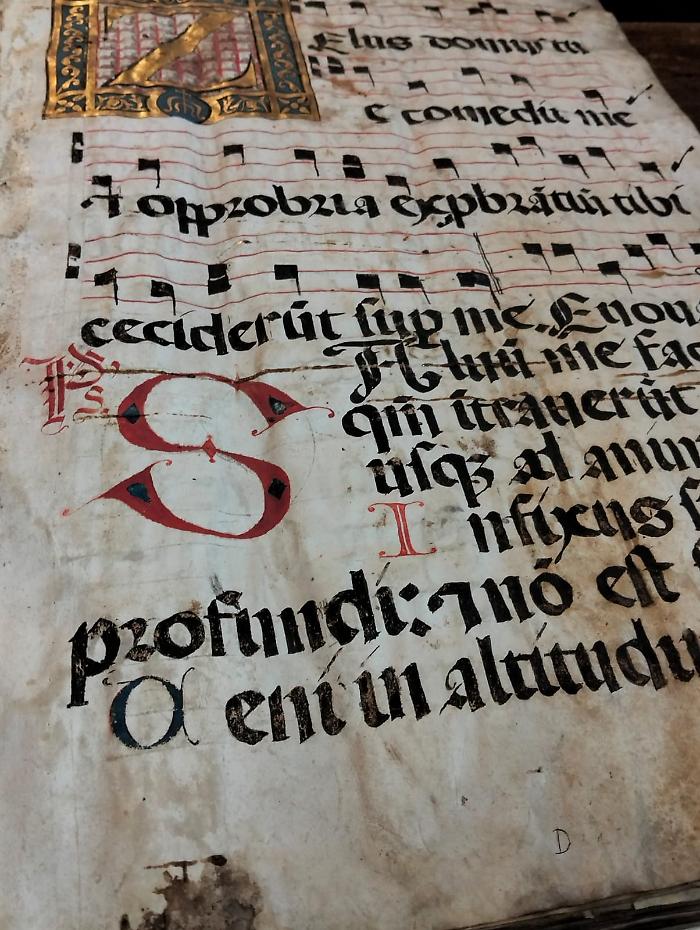 ZElus domus tu
e comedit me
⁊ opprobria exprobrātiū tibi
ceciderūt sup me. Euou
Ps. SAluū me fac
qm̄ itrauerūt
usqꝫ ad anim
Infixus s
profundi: ⁊ nō est s
Ueni in altitudin
D